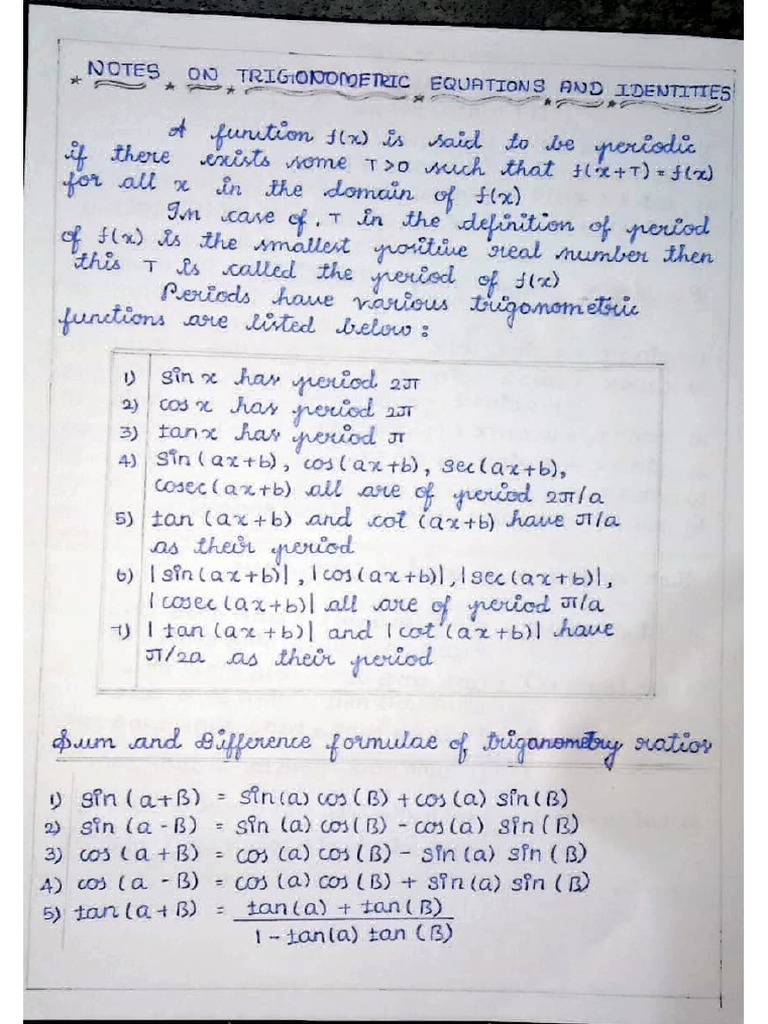 NOTES ON TRIGONOMETRIC EQUATIONS AND IDENTITIES
A function f(x) is said to be periodic
if there exists some T>0 such that f(x+T) = f(x)
for all x in the domain of f(x)
In case of, T in the definition of period
of f(x) is the smallest positive real number then
this T is called the period of f(x)
Periods have various trigonometric
functions are listed below:
1) sin x has period 2π
2) cos x has period 2π
3) tan x has period π
4) sin(ax+b), cos(ax+b), sec(ax+b),
cosec(ax+b) all are of period 2π/a
5) tan (ax+b) and cot (ax+b) have π/a
as their period
6) |sin(ax+b)|, |cos(ax+b)|, |sec(ax+b)|,
|cosec(ax+b)| all are of period π/a
7) |tan (ax+b)| and |cot (ax+b)| have
π/2a as their period
Sum and Difference formulae of trigonometry ratios
1) sin (a+ß) = sin(a) cos(ß) + cos(a) sin(ß)
2) sin (a-ß) = sin (a) cos(ß) - cos(a) sin(ß)
3) cos (a+ß) = cos (a) cos(ß) - sin(a) sin (ß)
4) cos (a -ß) = cos (a) cos (ß) + sin(a) sin (ß)
5) tan (a+ß) = tan(a) + tan(ß)
1-tan(a) tan (ß)